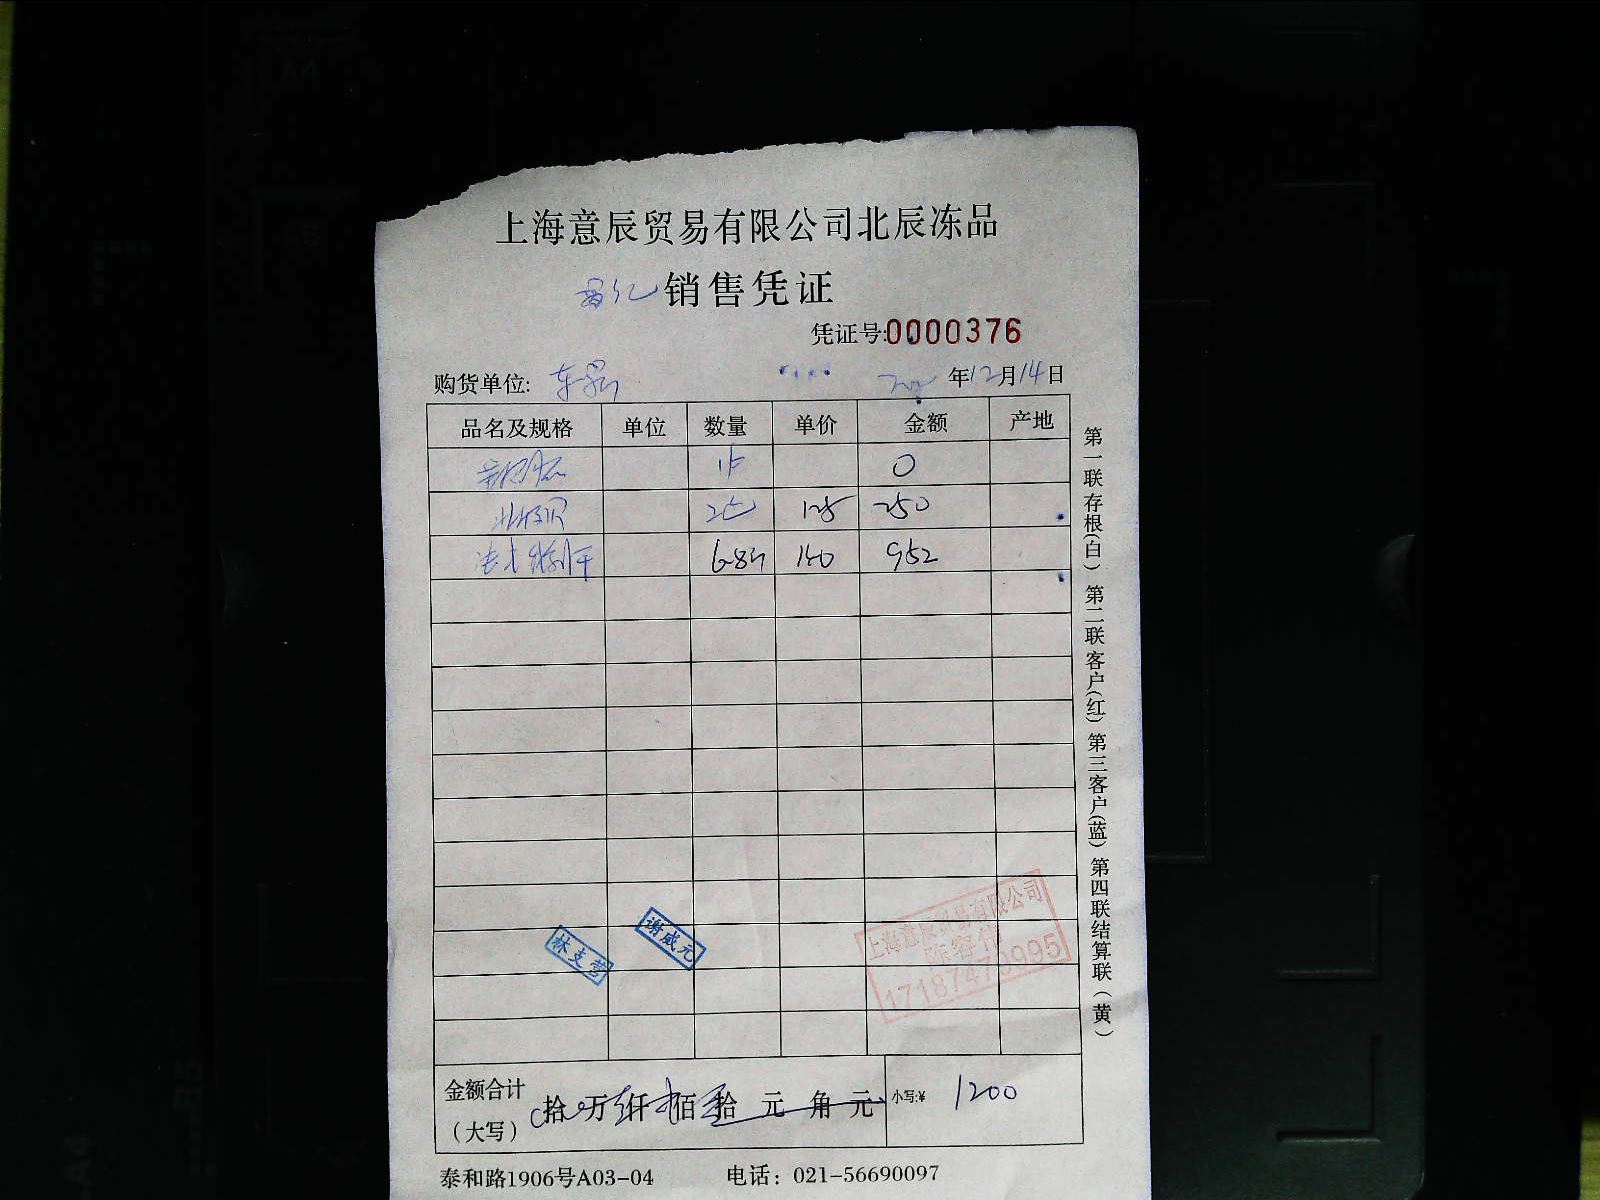 上海意辰贸易有限公司北辰冻品
销售凭证
凭证号:0000376
购货单位: 年12月14日
品名及规格 单位 数量 单价 金额 产地
0
北极贝 125 250
6.8 140 952
林支营 谢威元
上海意辰贸易有限公司
17187470995
金额合计 拾 万 仟 佰 拾 元 角 元 小写:¥ 1200
(大写)
泰和路1906号A03-04 电话：021-56690097
第一联存根(白) 第二联客户(红) 第三客户(蓝) 第四联结算联(黄)